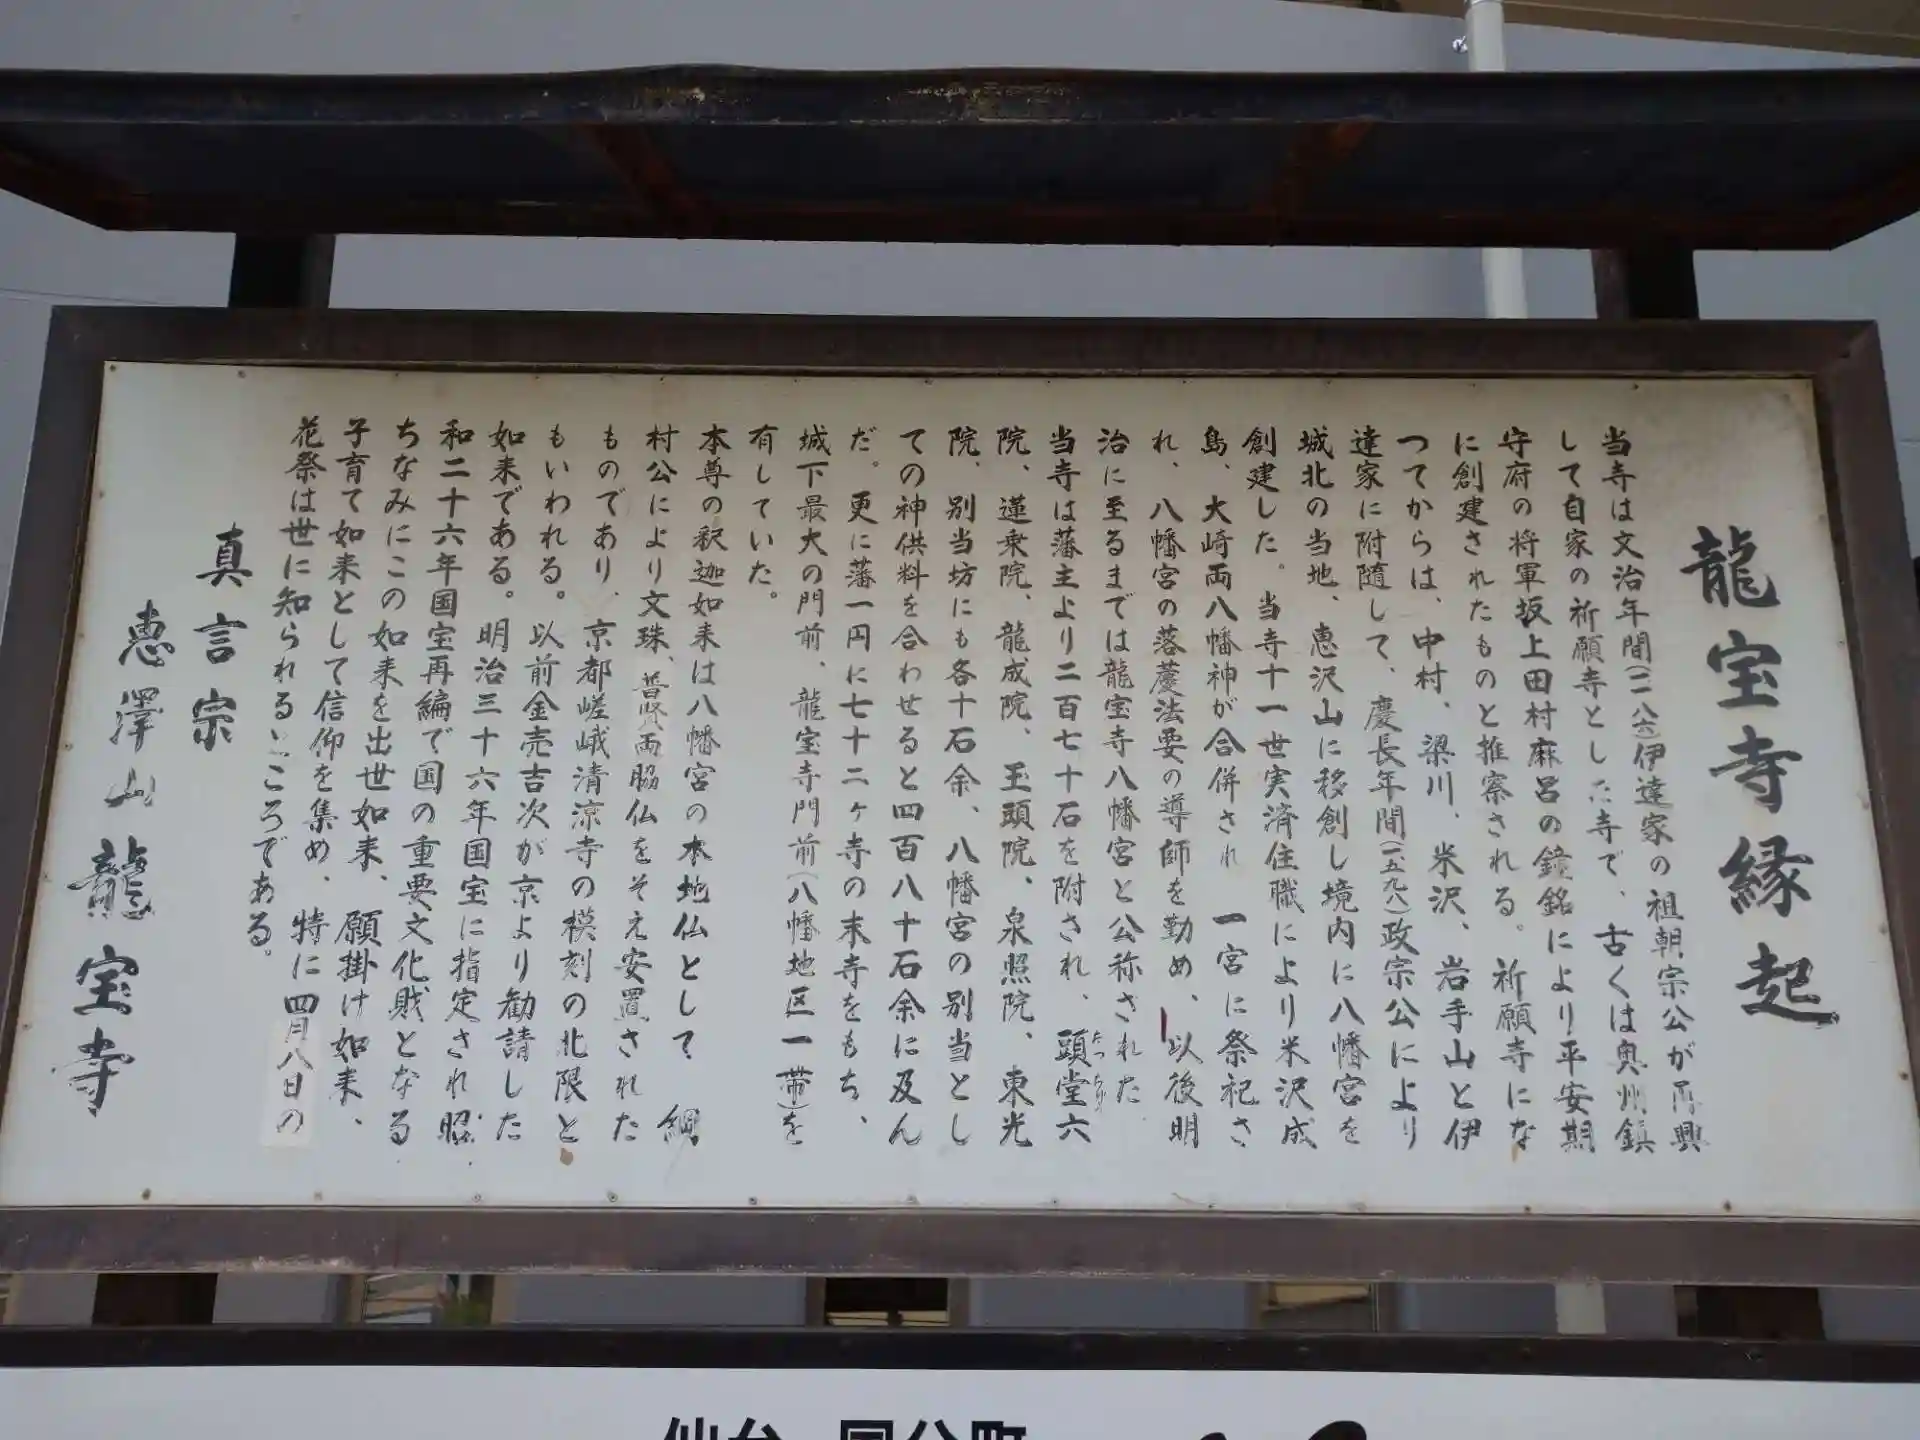 龍宝寺縁起
当寺は文治年間(一一八六)伊達家の祖朝宗公が再興
して自家の祈願寺とした寺で、古くは奥州鎮
守府の将軍坂上田村麻呂の鐘銘により平安期
に創建されたものと推察される。祈願寺にな
つてからは、中村、梁川、米沢、岩手山と伊
達家に附随して、慶長年間(一五九八)政宗公により
城北の当地、恵沢山に移創し境内に八幡宮を
創建した。当寺十一世実済住職により米沢成
島、大崎両八幡神が合併され一宮に祭祀さ
れ、八幡宮の落慶法要の導師を勤め、以後明
治に至るまでは龍宝寺八幡宮と公称された
当寺は藩主より二百七十石を附され、頭堂六
院、蓮乗院、龍成院、玉頭院、泉照院、東光
院、別当坊にも各十石余、八幡宮の別当とし
ての神供料を合わせると四百八十石余に及ん
だ。更に藩一円に七十二ヶ寺の末寺をもち、
城下最大の門前、龍宝寺門前(八幡地区一帯)を
有していた。
本尊の釈迦如来は八幡宮の本地仏として 綱
村公により文珠、普賢両脇仏をそえ安置された
ものであり、京都嵯峨清涼寺の模刻の北限と
もいわれる。以前金売吉次が京より勧請した
如来である。明治三十六年国宝に指定され昭
和二十六年国宝再編で国の重要文化財となる
ちなみにこの如来を出世如来、願掛け如来、
子育て如来として信仰を集め、特に四月八日の
花祭は世に知られるところである。
真言宗
恵澤山 龍宝寺
仙台 国分町